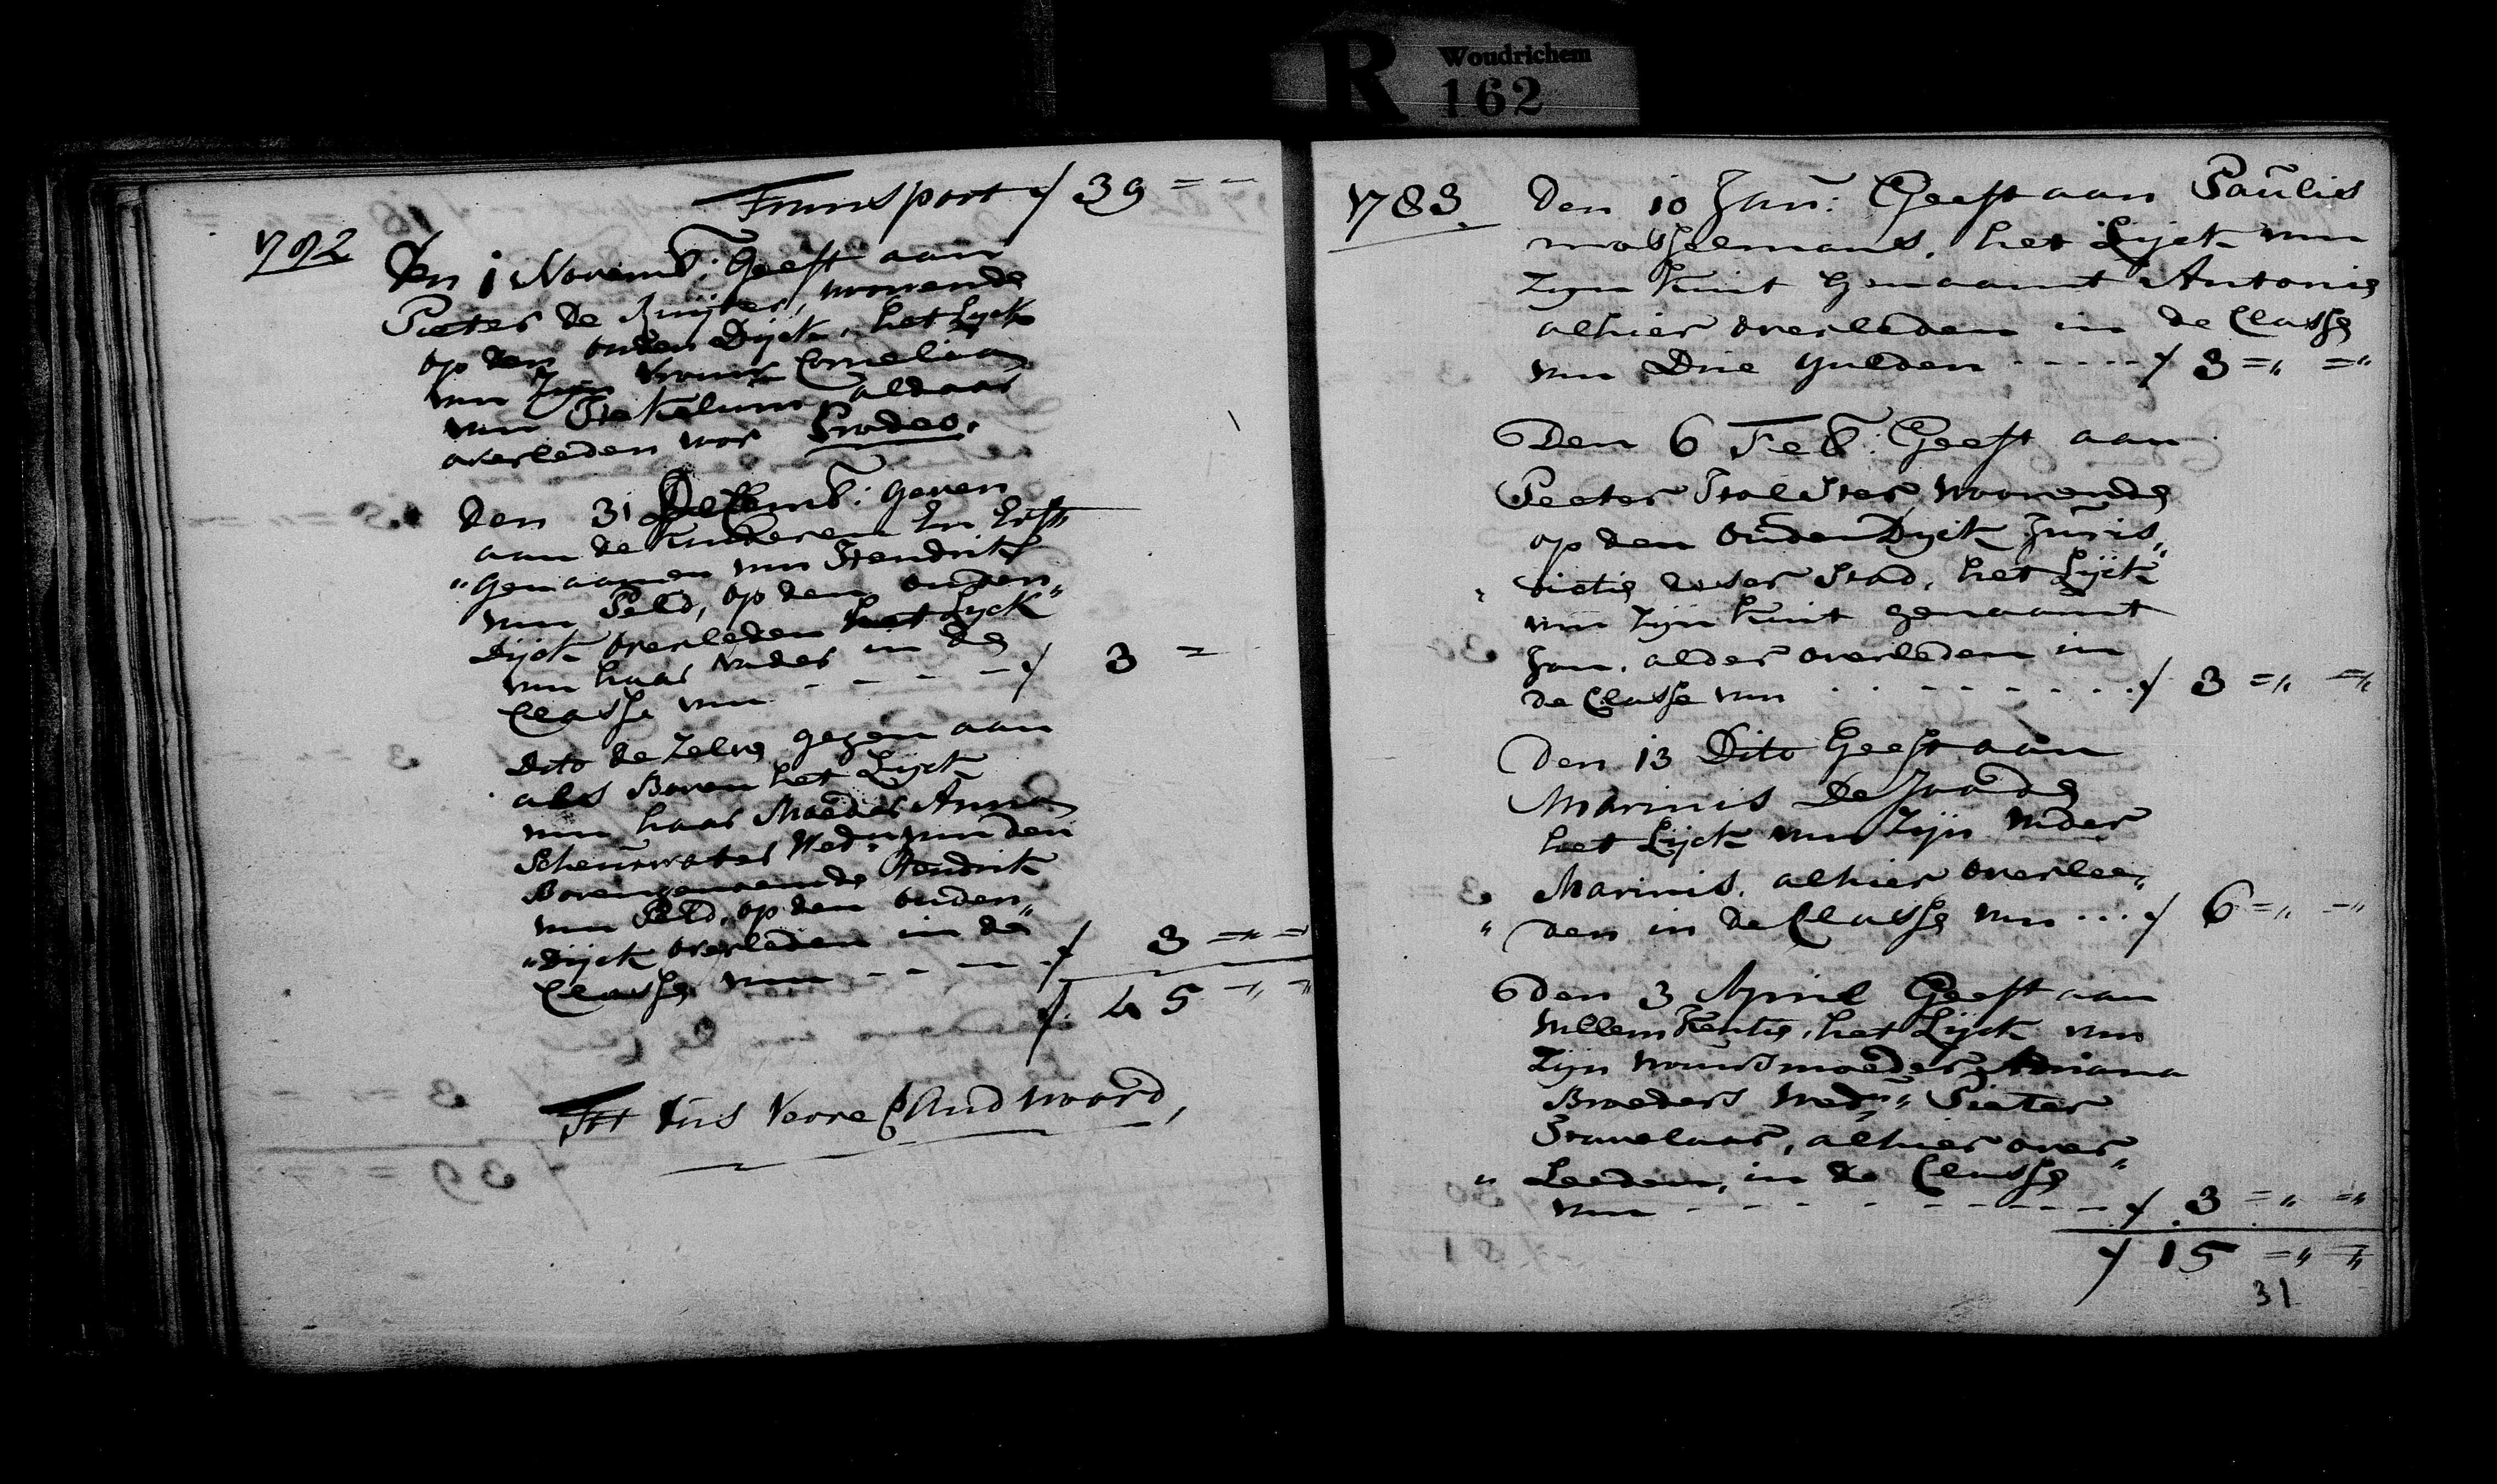 R Woudrichem
162
Transport ƒ 39 = -
1782
Den 1 Novemb: Geeft aan
Pieter de Ruijter, woonende
op den ouden Dyck, het Lyck
van Zyn vrouw Cornelia
van aldaar
overleden voor Prodeo.
Den 31 Decemb: geven
aan de kinderen en Erff
"genaamen van Hendrik
van Peld, op den ouden"
Dyck overleden het Lyck
van haar vader in de
Classe van - - - - ƒ 3 =
Dito de Zelve geven aan
als Boven het Lyck
van haar Moeder Anna
Scheurwater Wedu: van den
Bovengenoemde Hendrik
van Peld, op den ouden"
"Dijck overleden in de
Classe van - - - ƒ 3 = =
ƒ 45 = =
Tot dus Verre Verandwoord,
1783.
Den 10 Jan: Geeft aan Paulus
mosselmans, het Lyck van
Zyn kint Genaamt Antonie
alhier overleden in de Classe
van Drie gulden - - - - - ƒ 3 =" ="
Den 6 Feb: Geeft aan
Peeter woonende
op den ouden Dyck Juris"
"dictie deser Stad, het Lijck
van Zyn kint genaamt
Jan, alder overleden in
de Classe van - - - - - - - ƒ 3 =" ="
Den 13 Dito Geeft aan
Marinis De Joode
het Lijck van Zijn vader
Marinis, alhier overlee"
"den in de Classe van ... ƒ 6 =" ="
den 3 April Geeft aan
Willem het Lijck van
Zyn vrouwsmoeder Adriana
Broeders Wedu" Pieter
alhier over"
"Leeden, in de Classe
van - - - - - - - - - ƒ 3 =" ="
ƒ 15 =" ="
31